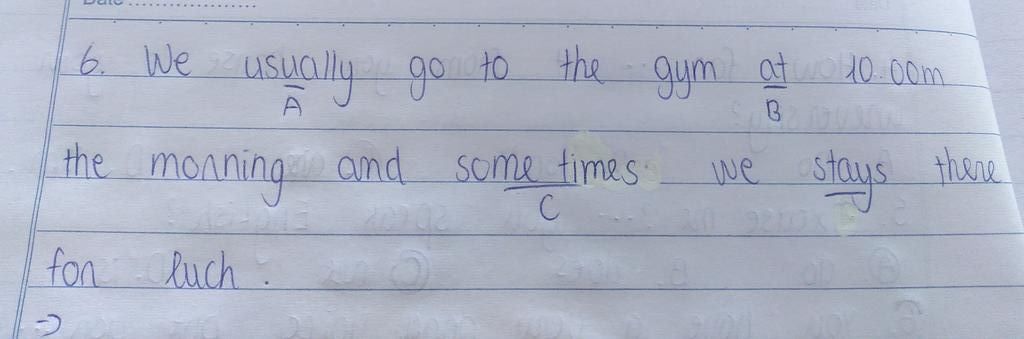 Date
6. We usually go to the gym at 10.00m
A B
the morning and some times we stays there
C
for luch.
=>